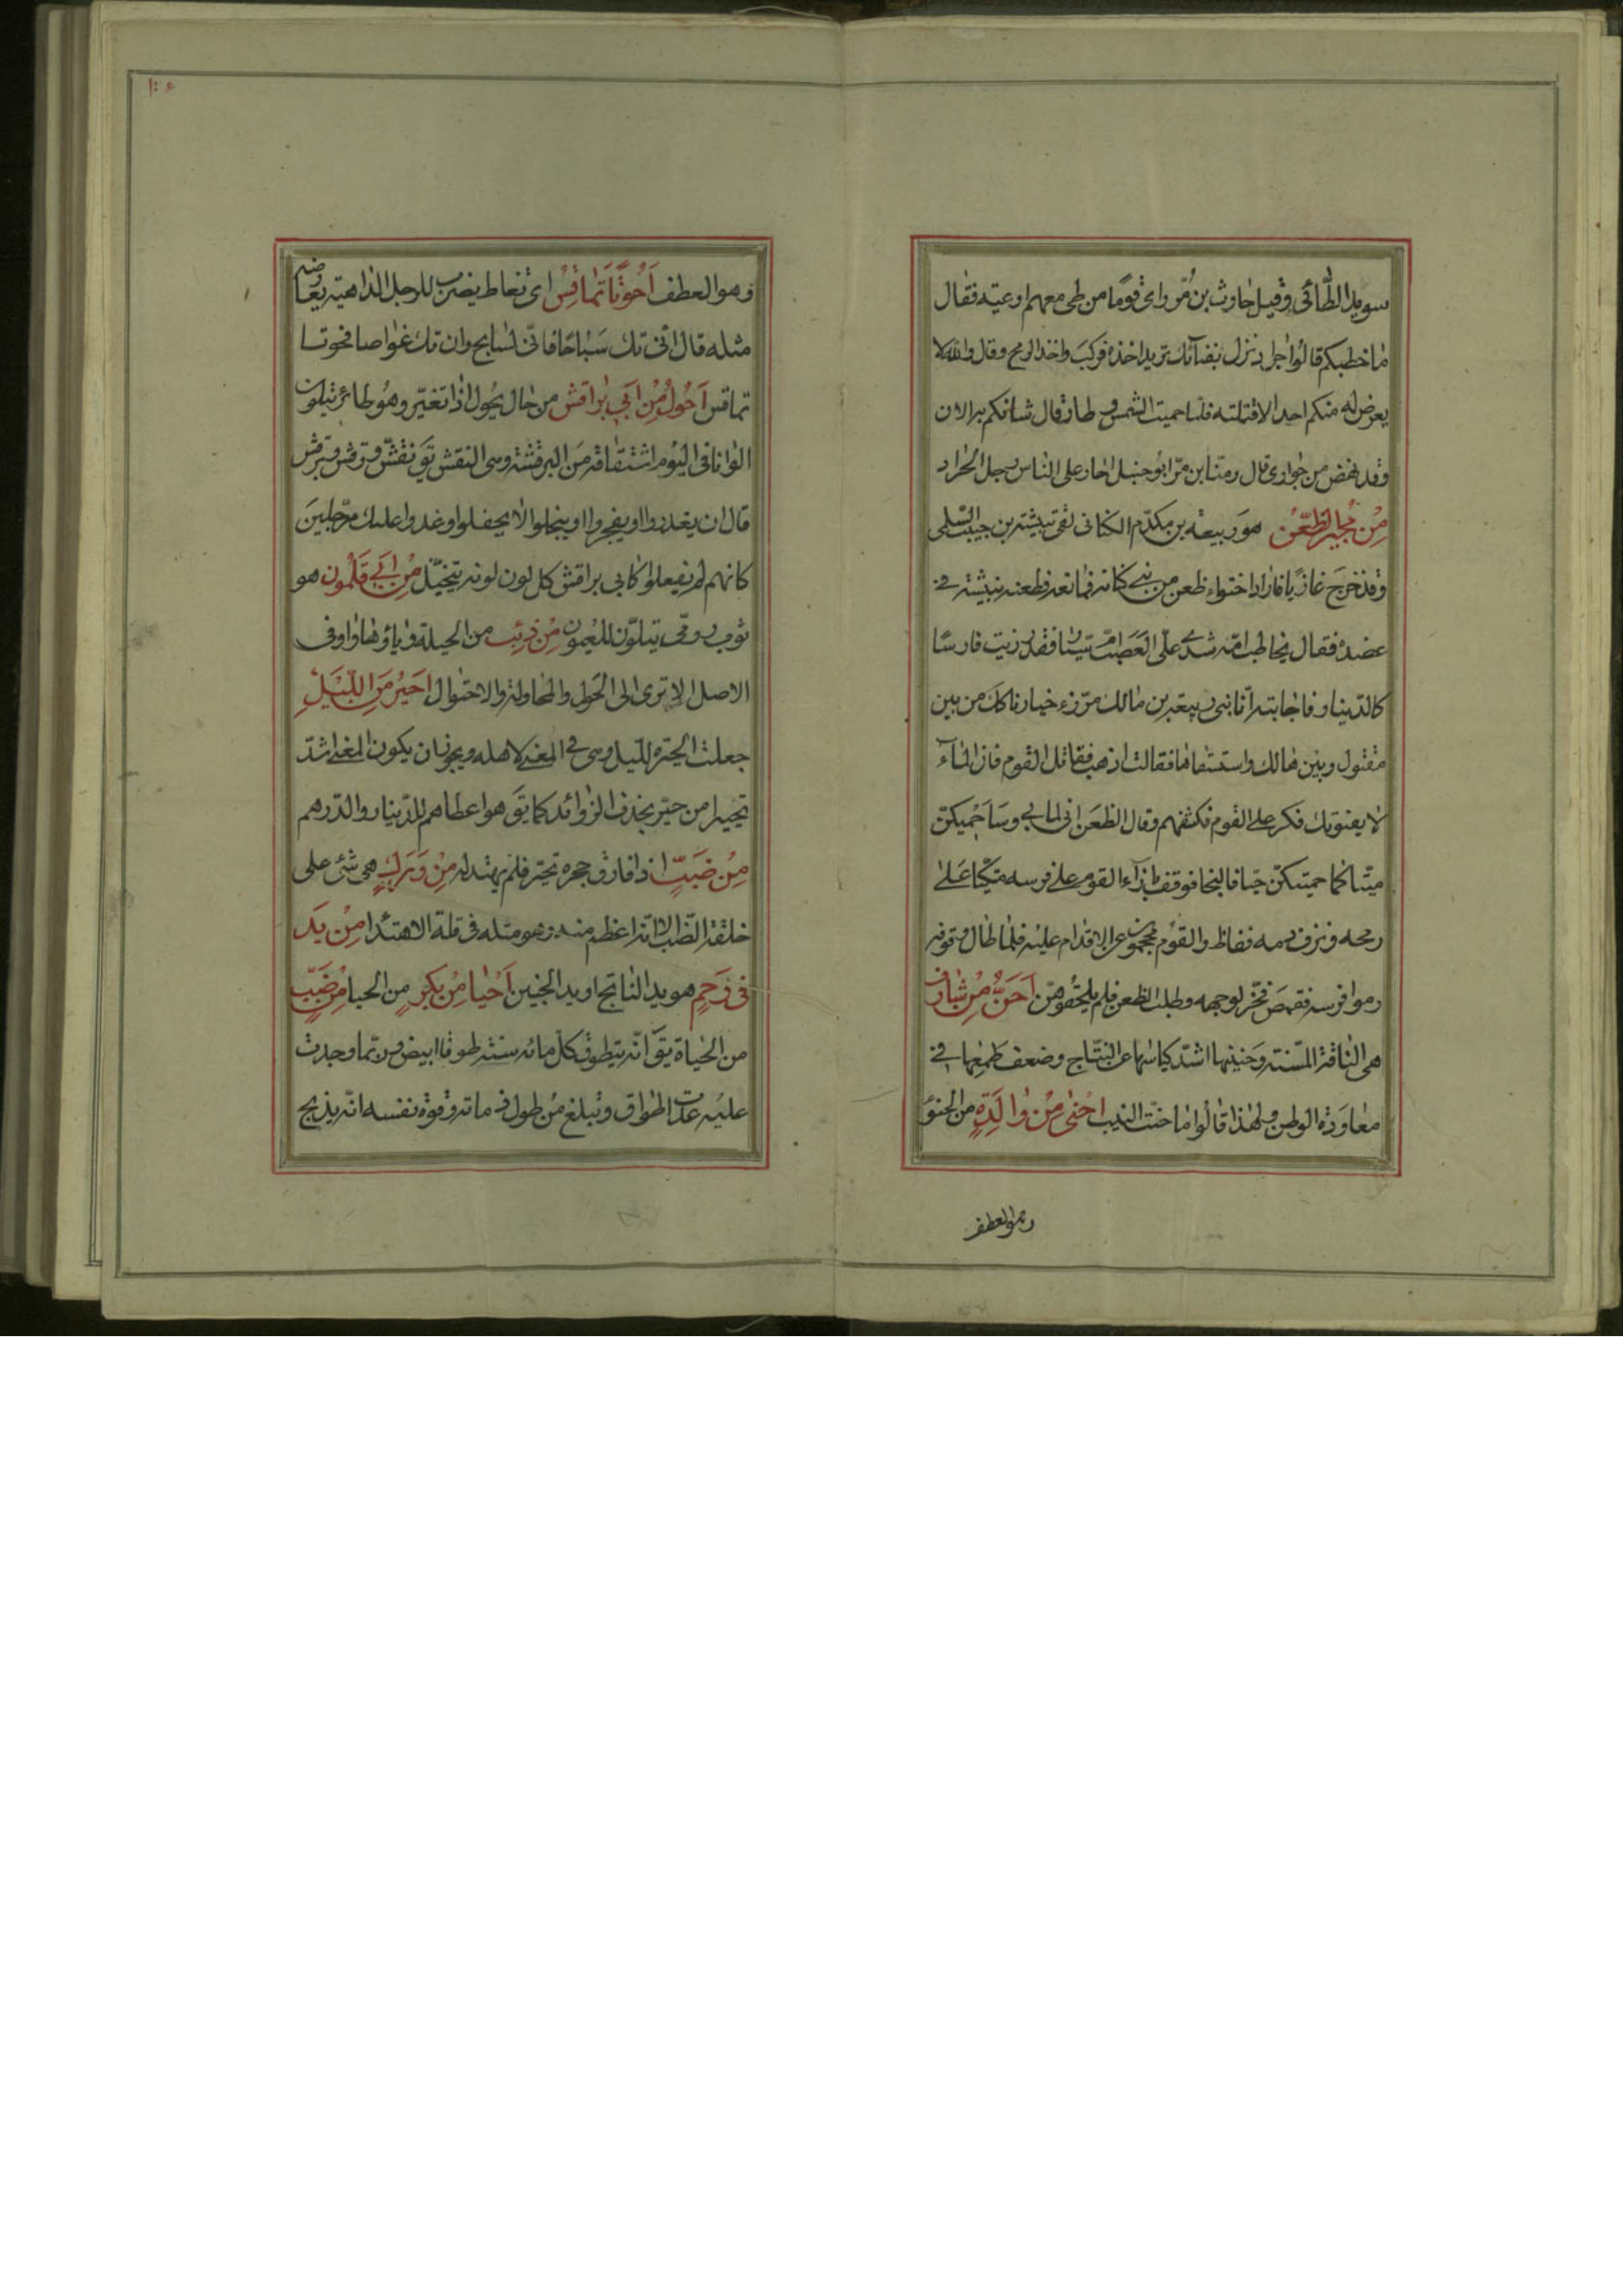 سويد الطائى وقيل حارث بن مر راى قوما من طى معهم اوعيته فقال
ما خطبكم قالوا جراد نزل بفنآئك نريد اخذه فركب واخذ الرمح وقال والله لا
يعرض له منكم احد الا قتلته فلما حميت الشمس و طار قال شانكم به الان
وقد نهض من جوارى قال ومنا ابن مر ابو حنبل اجار على الناس رجل الجراد
من مجير الظعن هو ربيعه بن مكدم الكنانى لقى نبيشة بن حبيب السلمى
وقد خرج غازيا فاراد احتواء ظعن من بنى كنانه فمانعه فطعنه نبيشة فى
عضده فقال يخاطب امه شدى على العصب ام سيار فقد رزيت فارسا
كالدينار فاجابته انا بنى ربيعة بن مالك مرزء خيارنا كك من بين
مقتول وبين هالك واستسقاها فقالت اذهب فقاتل القوم فان المآء
لا يفوتك فكر على القوم فكشفهم وقال الظعن انى لما بى وساحميكن
ميتا كما حميتكن حيا فالنجا فوقف بازآء القوم على فرسه متكيا على
رمحه ونزف دمه ففاظ والقوم محجمون عن الاقدام عليه فلما طال وقوفه
رموا فرسه فقمص فخر لوجهه وطلب الظعن فلم يلحقوهن احن من شارف
هى الناقة المسنة وحنينها اشد لاياسها عن النتاج وضعف طمعها فى
معاودة الوطن و لهذا قالوا ما حنت النيب احنى من والدة من الحنو
وهو العطف
وهو العطف احوتا تماقس اى تغاط يضرب للرجل الداهية يعارضه
مثله قال اتى تك سباحا فانى لسابح وان تك غواصا فحوتا
تماقس احول من ابى براقش من حال يحول اذا تغير وهو طائر يتلون
الوانا فى اليوم اشتقاقه من البرقشة وهى النقش يق نقش و رقش وبرقش
قال ان يغدروا او يفجروا او يبخلوا لا يحفلوا وغدوا عليك مرجلين
كانهم لم يفعلوا كابى براقش كل لون لونه يتخيل من ابى قلمون هو
ثوب رومى يتلون للعيون من ذئب من الحيلة وياؤها واو فى
الاصل الا ترى الى الحول والمحاولة والاحتوال احير من الليل
جعلت الحيرة لليل وهى فى المعنى لاهله ويجوز ان يكون المعنى اشد
تحييرا من حير بحذف الزوائد كما يق هو اعطاهم للدينار والدرهم
من ضب اذا فارق جحره تحير فلم يهتد له من ورل هى شئ على
خلقة الضب الا انه اعظم منه وهو مثله فى قلة الاهتدا من يد
فى رحم هو يد الناتج او يد الجنين احيا من بكر من الحيا من ضب
من الحياة يق انه يتطوق كل مائه سنة طوقا ابيض و ربما وجدت
عليه عدت اطواق وتبلغ من طول ذمائه وقوة نفسه انه يذبح